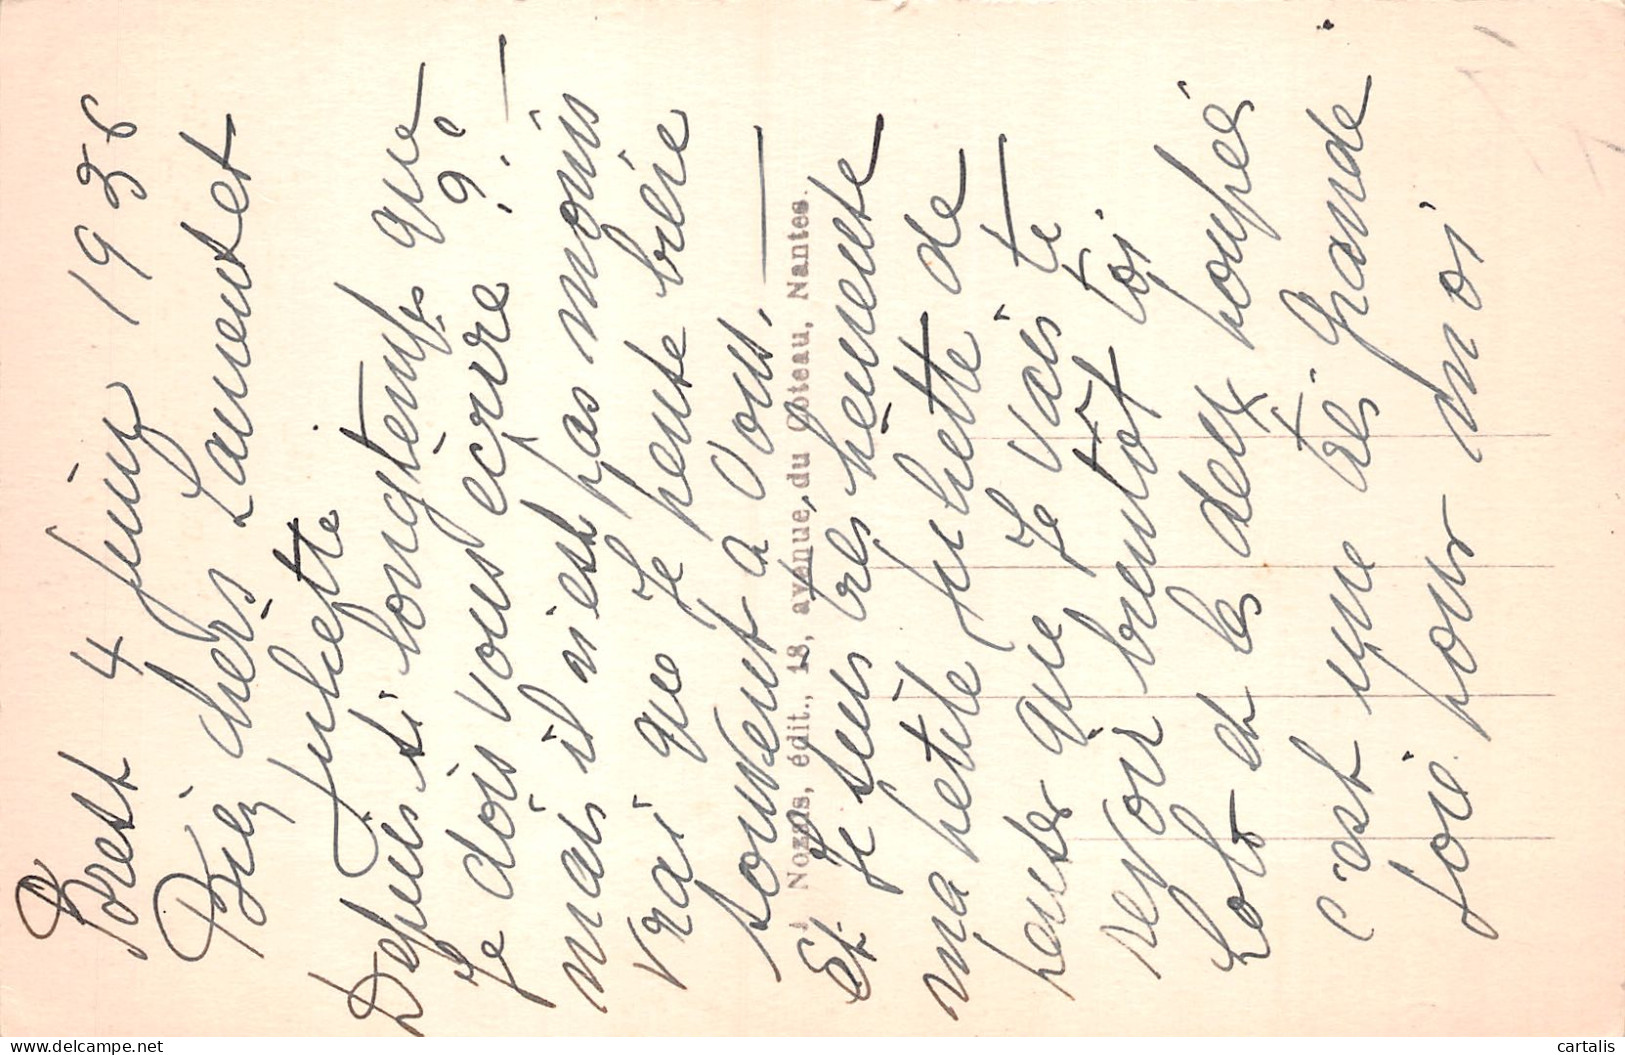 Brest 4 juin 1936
Bien chers Laurent et
Juliette
Depuis si longtemps que
Je dois vous écrire 9.e
mais il n'est pas moins
vrai que Je pense bien
souvent à Vous.
Et Je suis très heureuse
ma petite Juliette de
penser que Je Vais te
revoir bientôt toi
Lolo et les deux poupés
c'est une très Grande
Joie pour moi
Nozais, édit., 18, avenue du Coteau, Nantes.
cartalis
delcampe.net